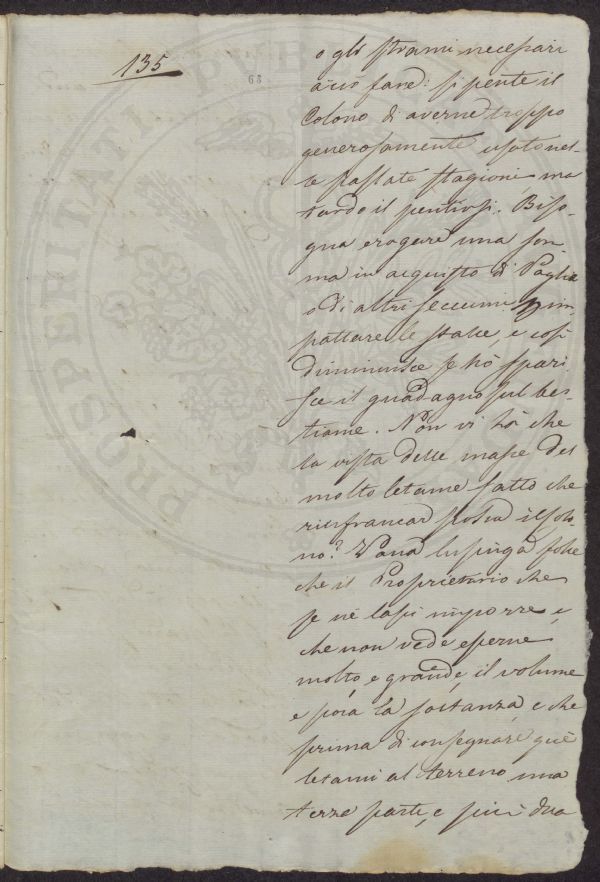 135
63
o gli strami necessari
a ciò fare: si pente il
Colono di averne troppo
generosamente usato nel-
le passate stagioni, ma
tardo il pentirsi. Biso-
gna erogare una som-
ma in acquisto di Paglia
o di altri seccumi
pattare le stalle, e così
diminuisce se no spari-
sce il guadagno sul bes-
tiame. Non vi hà che
la vista delle masse del
molto letame fatto che
rinfrancar possa il Colo-
no? Vana lusinga folle
che il Proprietario che
se ne lasci imporre e
che non vede esserne
molto e grande, il volume
e poca la sostanza, e che
prima di consegnare que'
letami al terreno una
terza parte, e più due
PROSPERITATI PUB